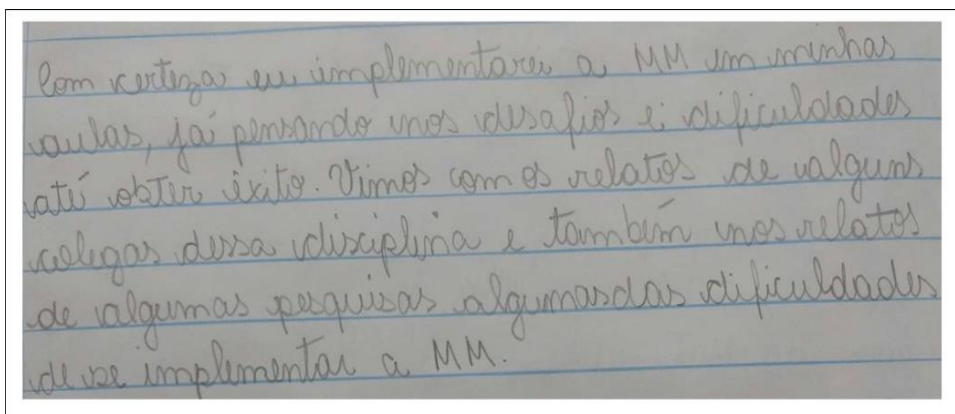 Com certeza eu implementarei a MM em minhas
aulas, já pensando nos desafios e dificuldades
até obter êxito. Vimos com os relatos de alguns
colegas dessa disciplina e também nos relatos
de algumas pesquisas algumas das dificuldades
de se implementar a MM.